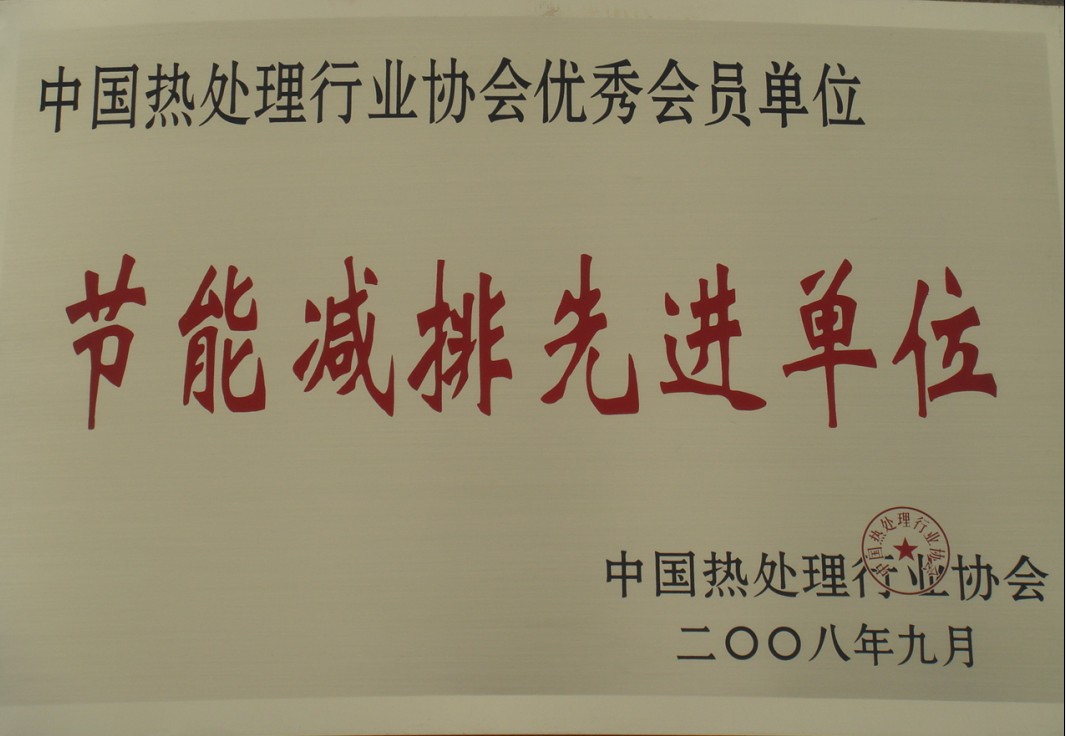 中国热处理行业协会优秀会员单位
节能减排先进单位
中国热处理行业协会
中国热处理行业协会
二〇〇八年九月